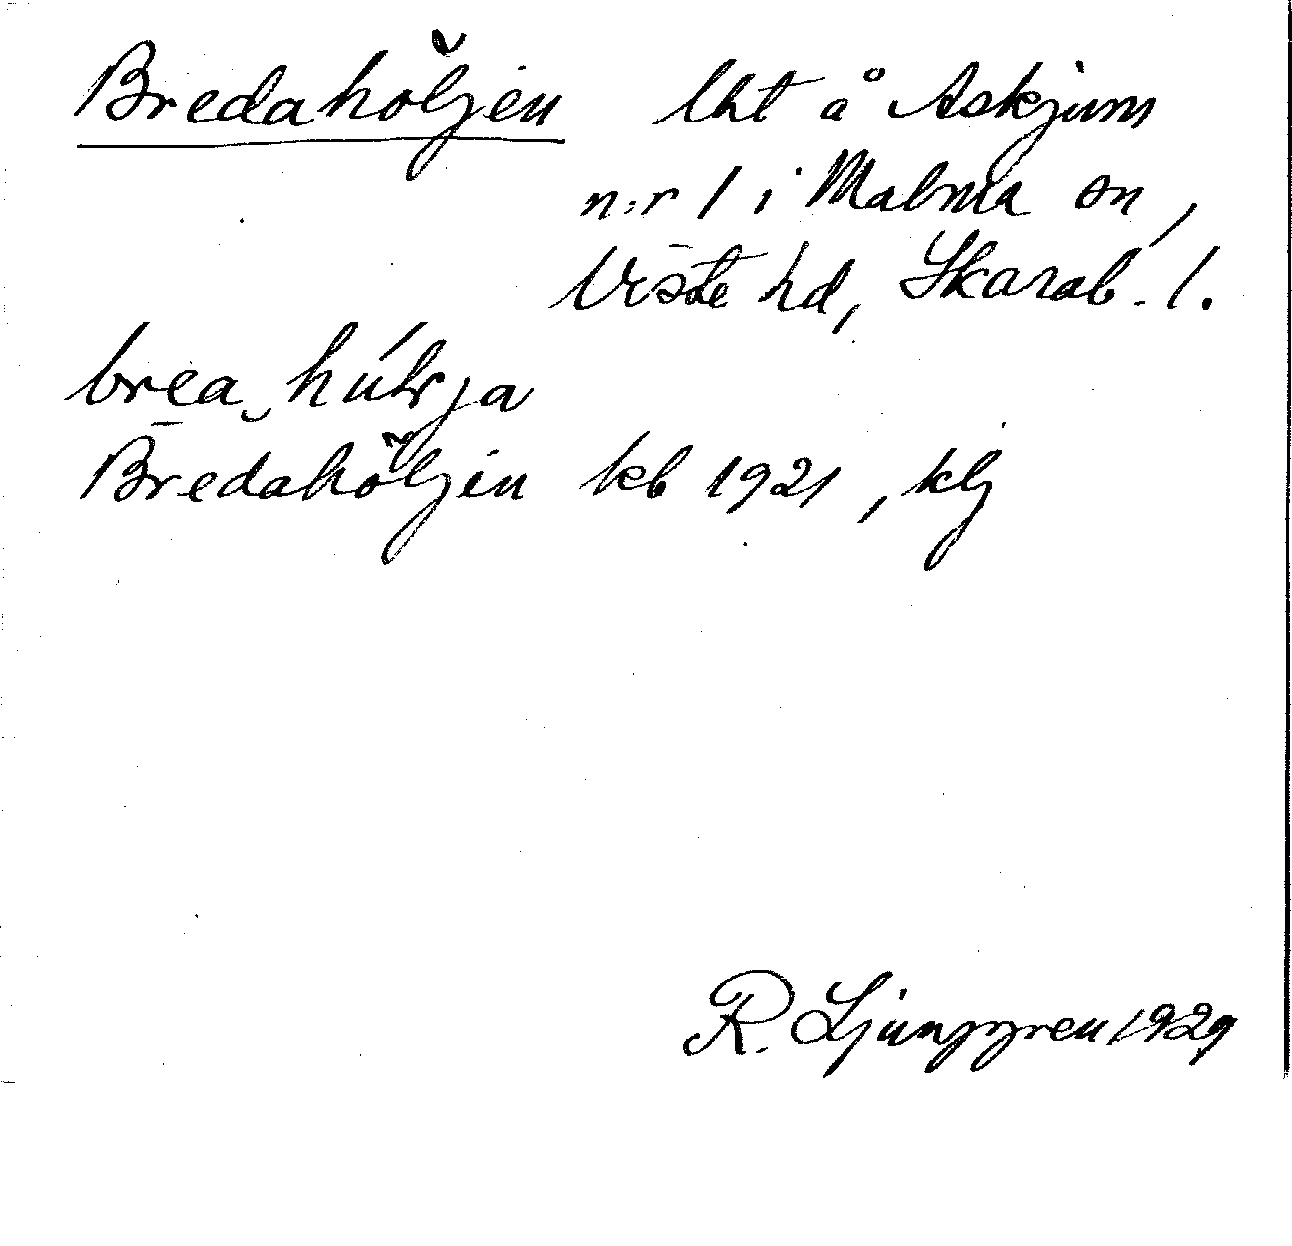 Bredahöljen lht å Askjum
n:r 1 i Malma sn,
Viste hd, Skarab. l.
Bredahöljen kb 1921, klj
R. Ljunggren 1929